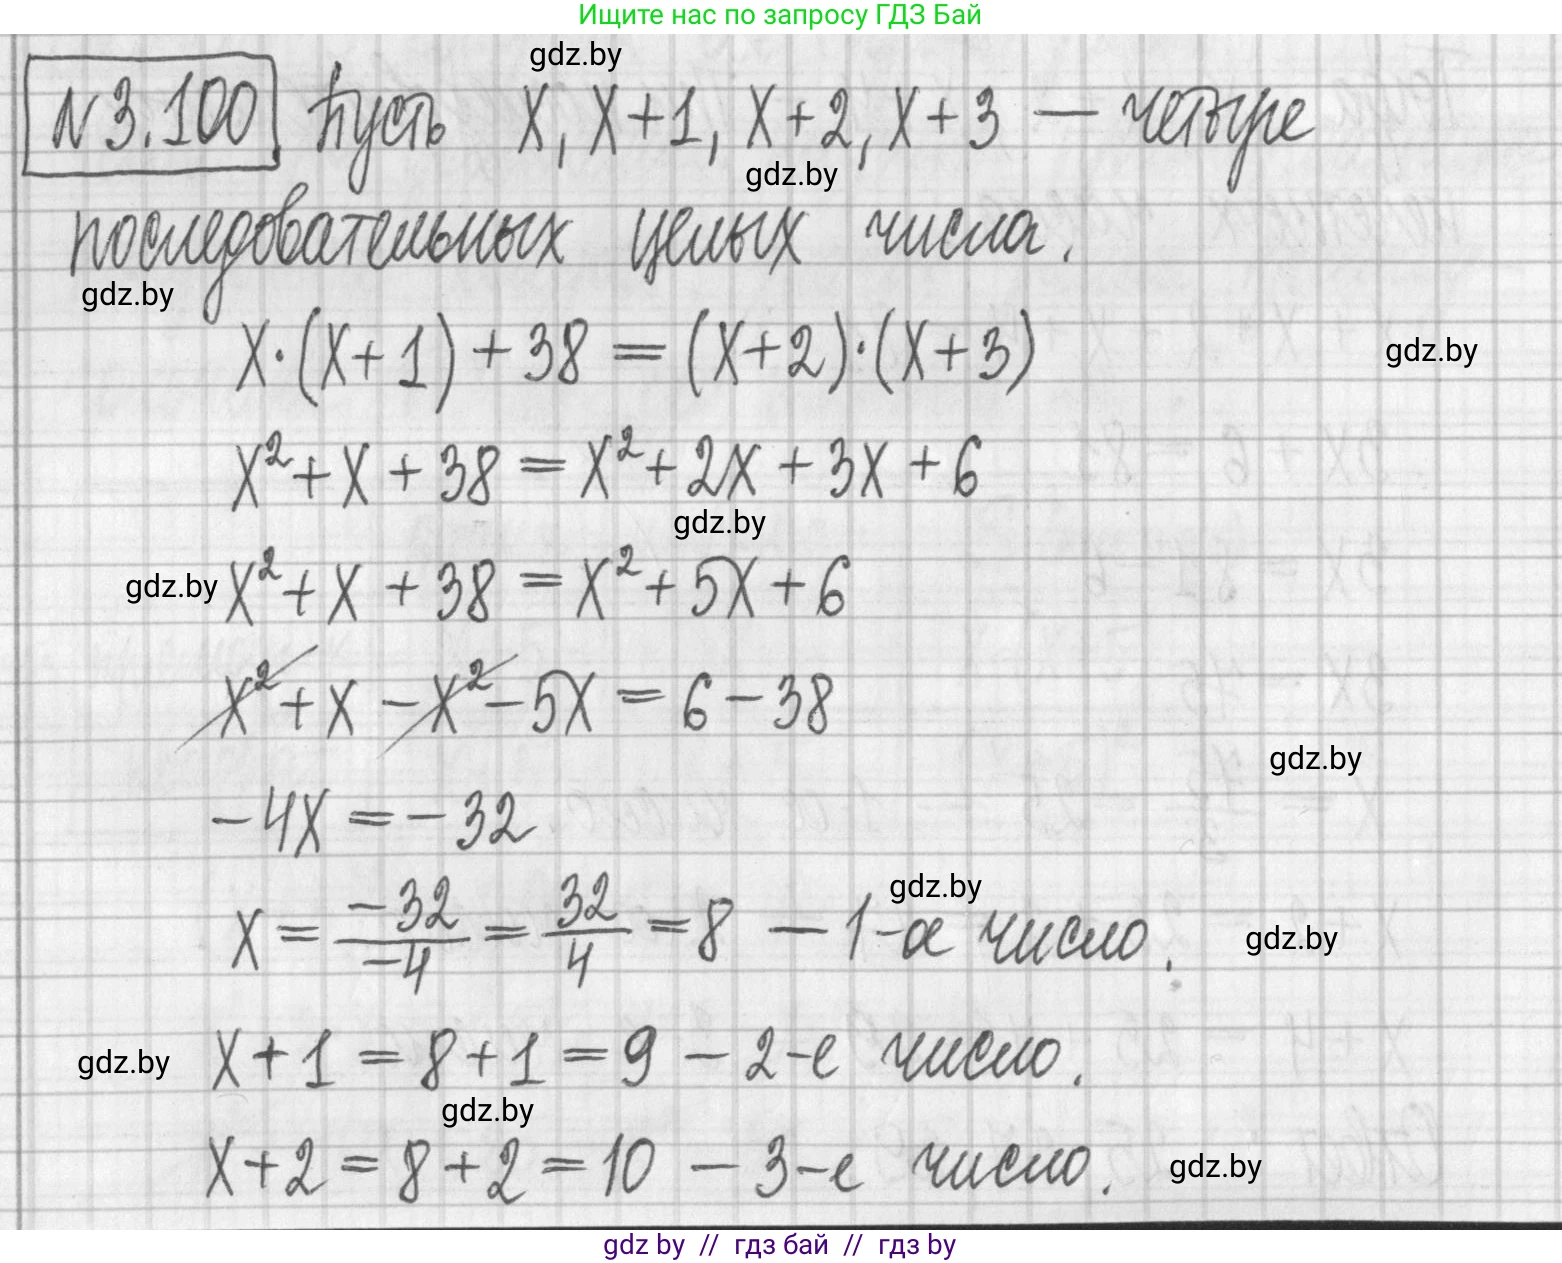 Ищите нас по запросу ГДЗ Бай
gdz.by
N3.100 Пусть x, x+1, x+2, x+3 — четыре
gdz.by
последовательных целых числа.
gdz.by
x·(x+1)+38=(x+2)·(x+3)
gdz.by
x²+x+38=x²+2x+3x+6
gdz.by
gdz.by
x²+x+38=x²+5x+6
x²+x-x²-5x=6-38
gdz.by
-4x=-32
gdz.by
x=-32/-4=32/4=8 — 1-ое число.
gdz.by
gdz.by
x+1=8+1=9 — 2-е число.
gdz.by
x+2=8+2=10 — 3-е число.
gdz.by
gdz by // гдз бай // гдз by